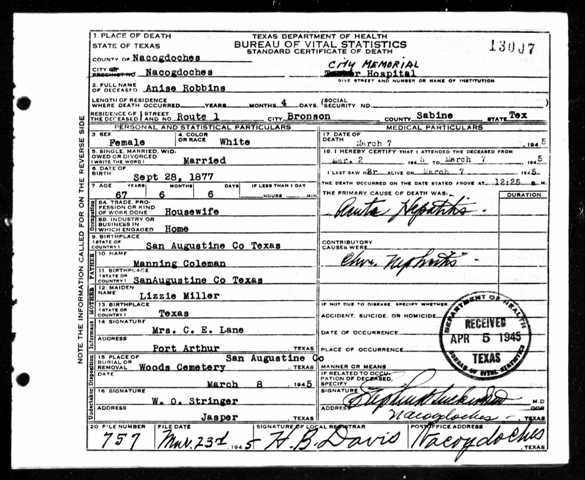 1. PLACE OF DEATH
STATE OF TEXAS
TEXAS DEPARTMENT OF HEALTH
BUREAU OF VITAL STATISTICS
STANDARD CERTIFICATE OF DEATH
13007
COUNTY OF Nacogdoches
CITY OR PRECINCT NO. Nacogdoches
CITY MEMORIAL
Hospital
GIVE STREET AND NUMBER OR NAME OF INSTITUTION
2. FULL NAME OF DECEASED Anise Robbins
LENGTH OF RESIDENCE WHERE DEATH OCCURRED YEARS MONTHS 4 DAYS (SOCIAL SECURITY NO.
RESIDENCE OF THE DECEASED STREET AND NO. Route 1 CITY Bronson COUNTY Sabine STATE Tex
PERSONAL AND STATISTICAL PARTICULARS
3. SEX Female
4. COLOR OR RACE White
5. SINGLE, MARRIED, WIDOWED OR DIVORCED (WRITE THE WORD) Married
6. DATE OF BIRTH Sept 28, 1877
7. AGE YEARS MONTHS DAYS IF LESS THAN 1 DAY
67 6 6 HOURS MIN
8A. TRADE, PROFESSION OR KIND OF WORK DONE Housewife
8B. INDUSTRY OR BUSINESS IN WHICH ENGAGED Home
9. BIRTHPLACE (STATE OR COUNTRY) San Augustine Co Texas
10. NAME Manning Coleman
11. BIRTHPLACE (STATE OR COUNTRY) SanAugustine Co Texas
12. MAIDEN NAME Lizzie Miller
13. BIRTHPLACE (STATE OR COUNTRY) Texas
14. SIGNATURE Mrs. C. E. Lane
ADDRESS Port Arthur TEXAS
15. PLACE OF BURIAL OR REMOVAL San Augustine Co
Woods Cemetery TEXAS
DATE March 8 1945
16. SIGNATURE W. O. Stringer
ADDRESS Jasper TEXAS
MEDICAL PARTICULARS
17. DATE OF DEATH March 7 1945
18. I HEREBY CERTIFY THAT I ATTENDED THE DECEASED FROM
Mar. 2 1945 TO March 7 1945
I LAST SAW her ALIVE ON March 7 1945
THE DEATH OCCURRED ON THE DATE STATED ABOVE AT 12:25 M.
THE PRIMARY CAUSE OF DEATH WAS: DURATION
Acute Hepatitis
CONTRIBUTORY CAUSES WERE
Chr. Nephritis
IF NOT DUE TO DISEASE, SPECIFY WHETHER
ACCIDENT, SUICIDE, OR HOMICIDE
DATE OF OCCURRENCE
PLACE OF OCCURRENCE
MANNER OR MEANS
IF RELATED TO OCCUPATION OF DECEASED, SPECIFY
SIGNATURE M.D.
ADDRESS Nacogdoches TEXAS
DEPARTMENT OF HEALTH
RECEIVED
APR 5 1945
TEXAS
BUREAU OF VITAL STATISTICS
20. FILE NUMBER 757
FILE DATE Mar. 23rd 1945
SIGNATURE OF LOCAL REGISTRAR H. B. Davis
POST OFFICE ADDRESS Nacogdoches TEXAS
NOTE THE INFORMATION CALLED FOR ON THE REVERSE SIDE
Occupation
FATHER
MOTHER
Informant
Undertaker Disposition